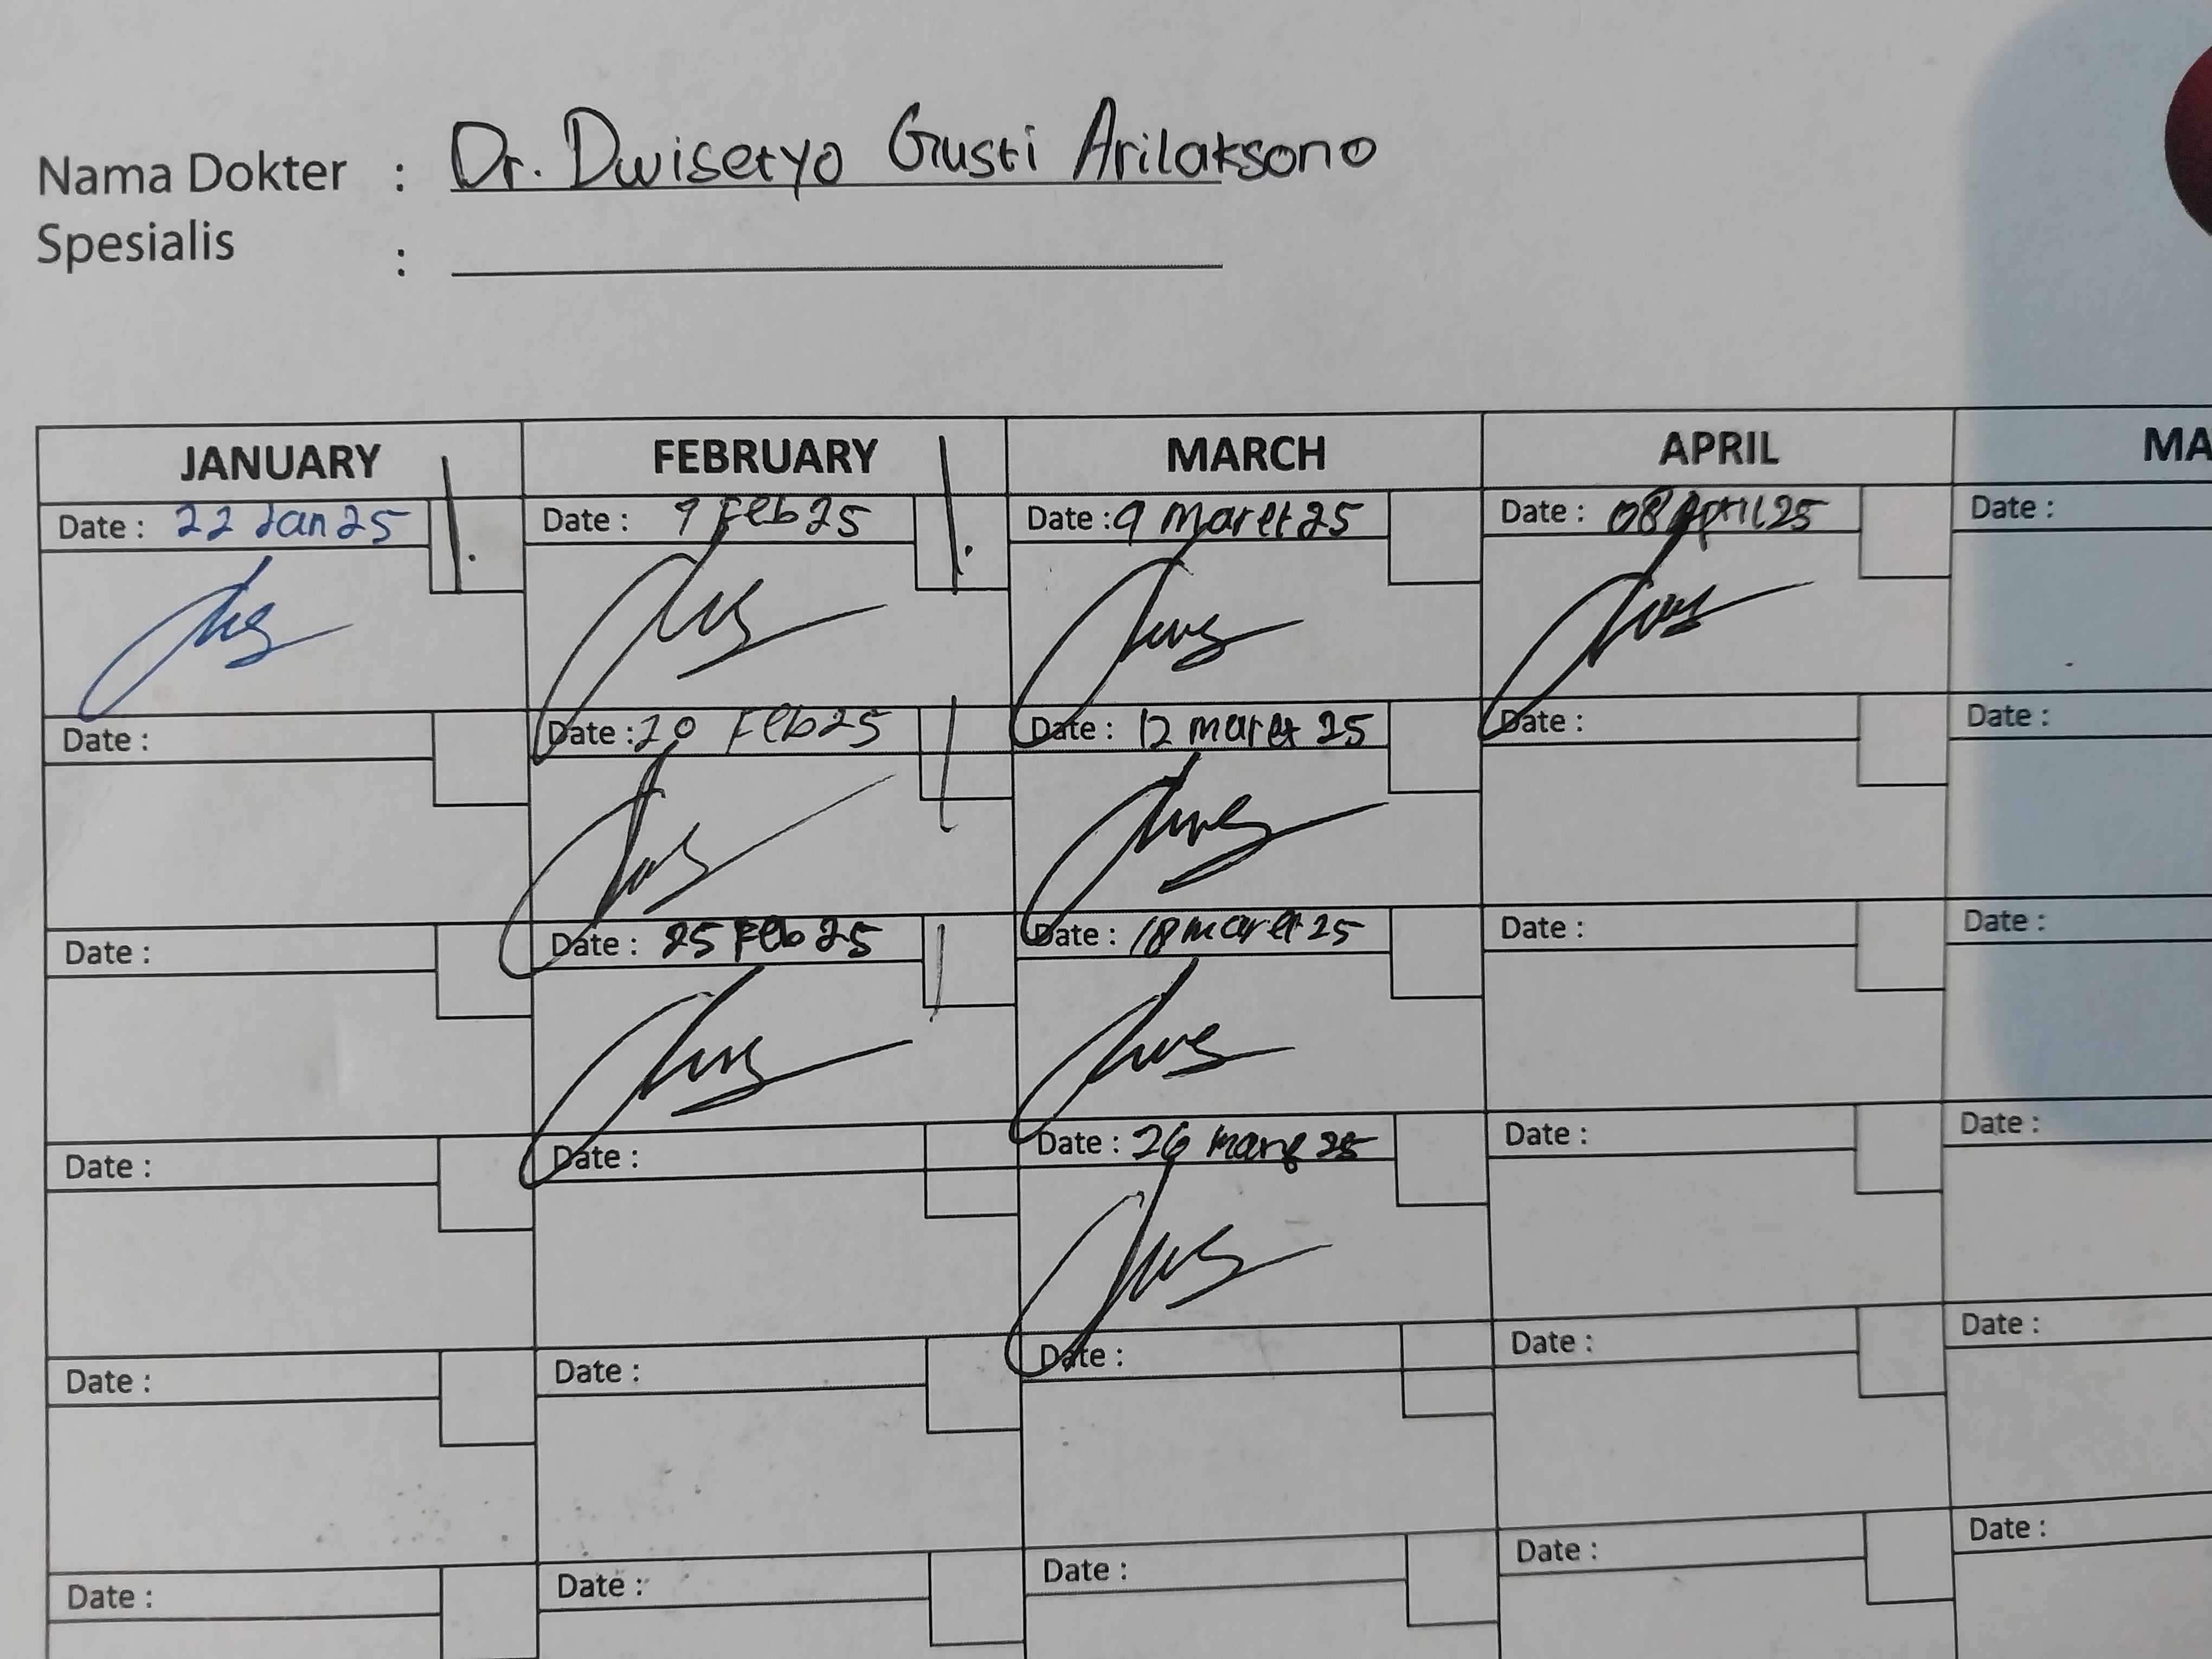 Nama Dokter : Dr. Dwisetyo Gusti Arilaksono
Spesialis :
JANUARY FEBRUARY MARCH APRIL MA
Date : 22 Jan 25 Date : 9 Feb 25 Date : 9 Maret 25 Date : 08 April 25 Date :
Date : Date : 20 Feb 25 Date : 12 maret 25 Date : Date :
Date : Date : 25 Feb 25 Date : 18 maret 25 Date : Date :
Date : Date : Date : 26 maret 25 Date : Date :
Date : Date : Date : Date : Date :
Date : Date : Date : Date : Date :